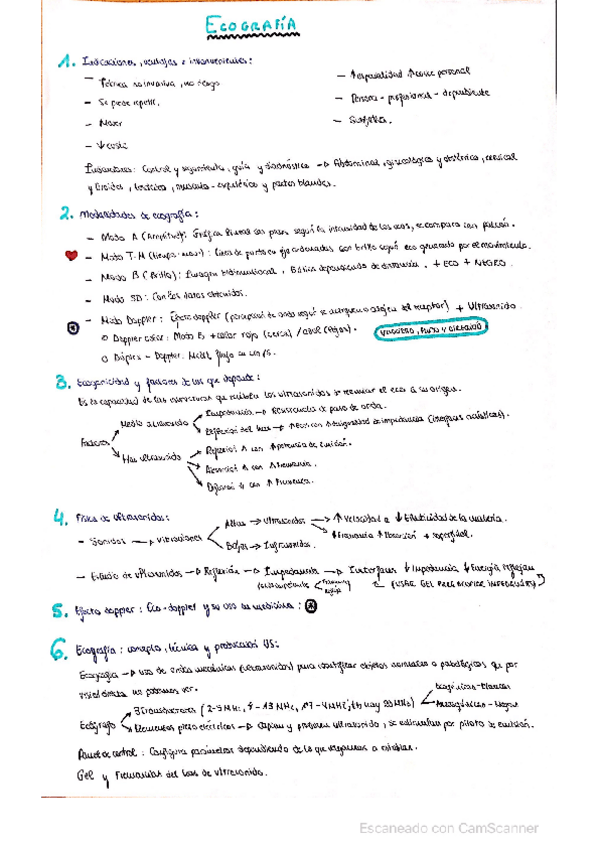 ECOGRAFÍA
1. Indicaciones, ventajas e inconvenientes:
- Técnica no invasiva, no riesgo
- Se puede repetir.
- ↓ coste
- ↑ especialidad ↑ coste personal
- Persona - profesional - dependiente
- Subjetiva.
Indicaciones: Control y seguimiento, guía y diagnóstico → Abdominal, ginecológica y obstétrica, cervical
y tiroidea, torácica, musculo-esquelético y partes blandas.
2. Modalidades de ecografía:
- Modo A (Amplitud): Gráfica lineal con picos según la intensidad de los ecos, se compara con patrón.
- Modo T-M (tiempo-mov): Línea de puntos en eje ordenadas con brillo según eco generado por el movimiento.
- Modo B (Brillo): Imagen bidimensional, dependiendo de distancia, + ECO + NEGRO
- Modo 3D: Con los datos obtenidos.
- Modo Doppler: Efecto doppler (percepción de onda según se acerquen o alejen del receptor) + Ultrasonido
o Doppler color: Modo B + color rojo (cerca) / azul (lejos).
VELOCIDAD, FLUJO Y DIRECCIÓN
o Dúplex - Doppler. Medir flujo en cm/s.
3. Ecogenicidad y factores de los que depende:
Es la capacidad de las estructuras que reciben los ultrasonidos de reenviar el eco a su origen.
Factores
Medio atravesado
Impedancia → Resistencia al paso de onda.
Reflexión del haz → Más con ↑ desigualdad de impedancia (interfases acústicas).
Haz ultrasonido
Reflexión ↑ con ↑ potencia de emisión.
Absorción ↑ con ↑ frecuencia.
Difusión ↑ con ↑ frecuencia.
4. Física de ultrasonidos:
- Sonidos → vibraciones
Altas → Ultrasonidos → ↑ Velocidad a ↓ Elasticidad de la materia.
↑ Frecuencia ↑ Absorción + superficial.
Bajas → Infrasonidos.
- Estudio de ultrasonidos → Reflexión → Impedancia → Interfases ↓ Impedancia ↓ Energía reflejan
(USAR GEL PARA IMPEDANCIA)
5. Efecto doppler: Eco-doppler y su uso en medicina:
6. Ecografía: concepto, técnica y protocolos US:
Ecografía → uso de ondas mecánicas (ultrasonidos) para identificar objetos normales o patológicos que por
visión directa no podemos ver.
Ecógrafo
3 transductores (2-5 MHz, 4-13 MHz, 17-4 MHz, hay 20 MHz)
Elementos piezo eléctricos → Captan y producen ultrasonido, se estimulan por pulso de emisión.
Panel de control: Configura parámetros dependiendo de lo que vayamos a estudiar.
Gel y frecuencias del haz de ultrasonido.
Escaneado con CamScanner